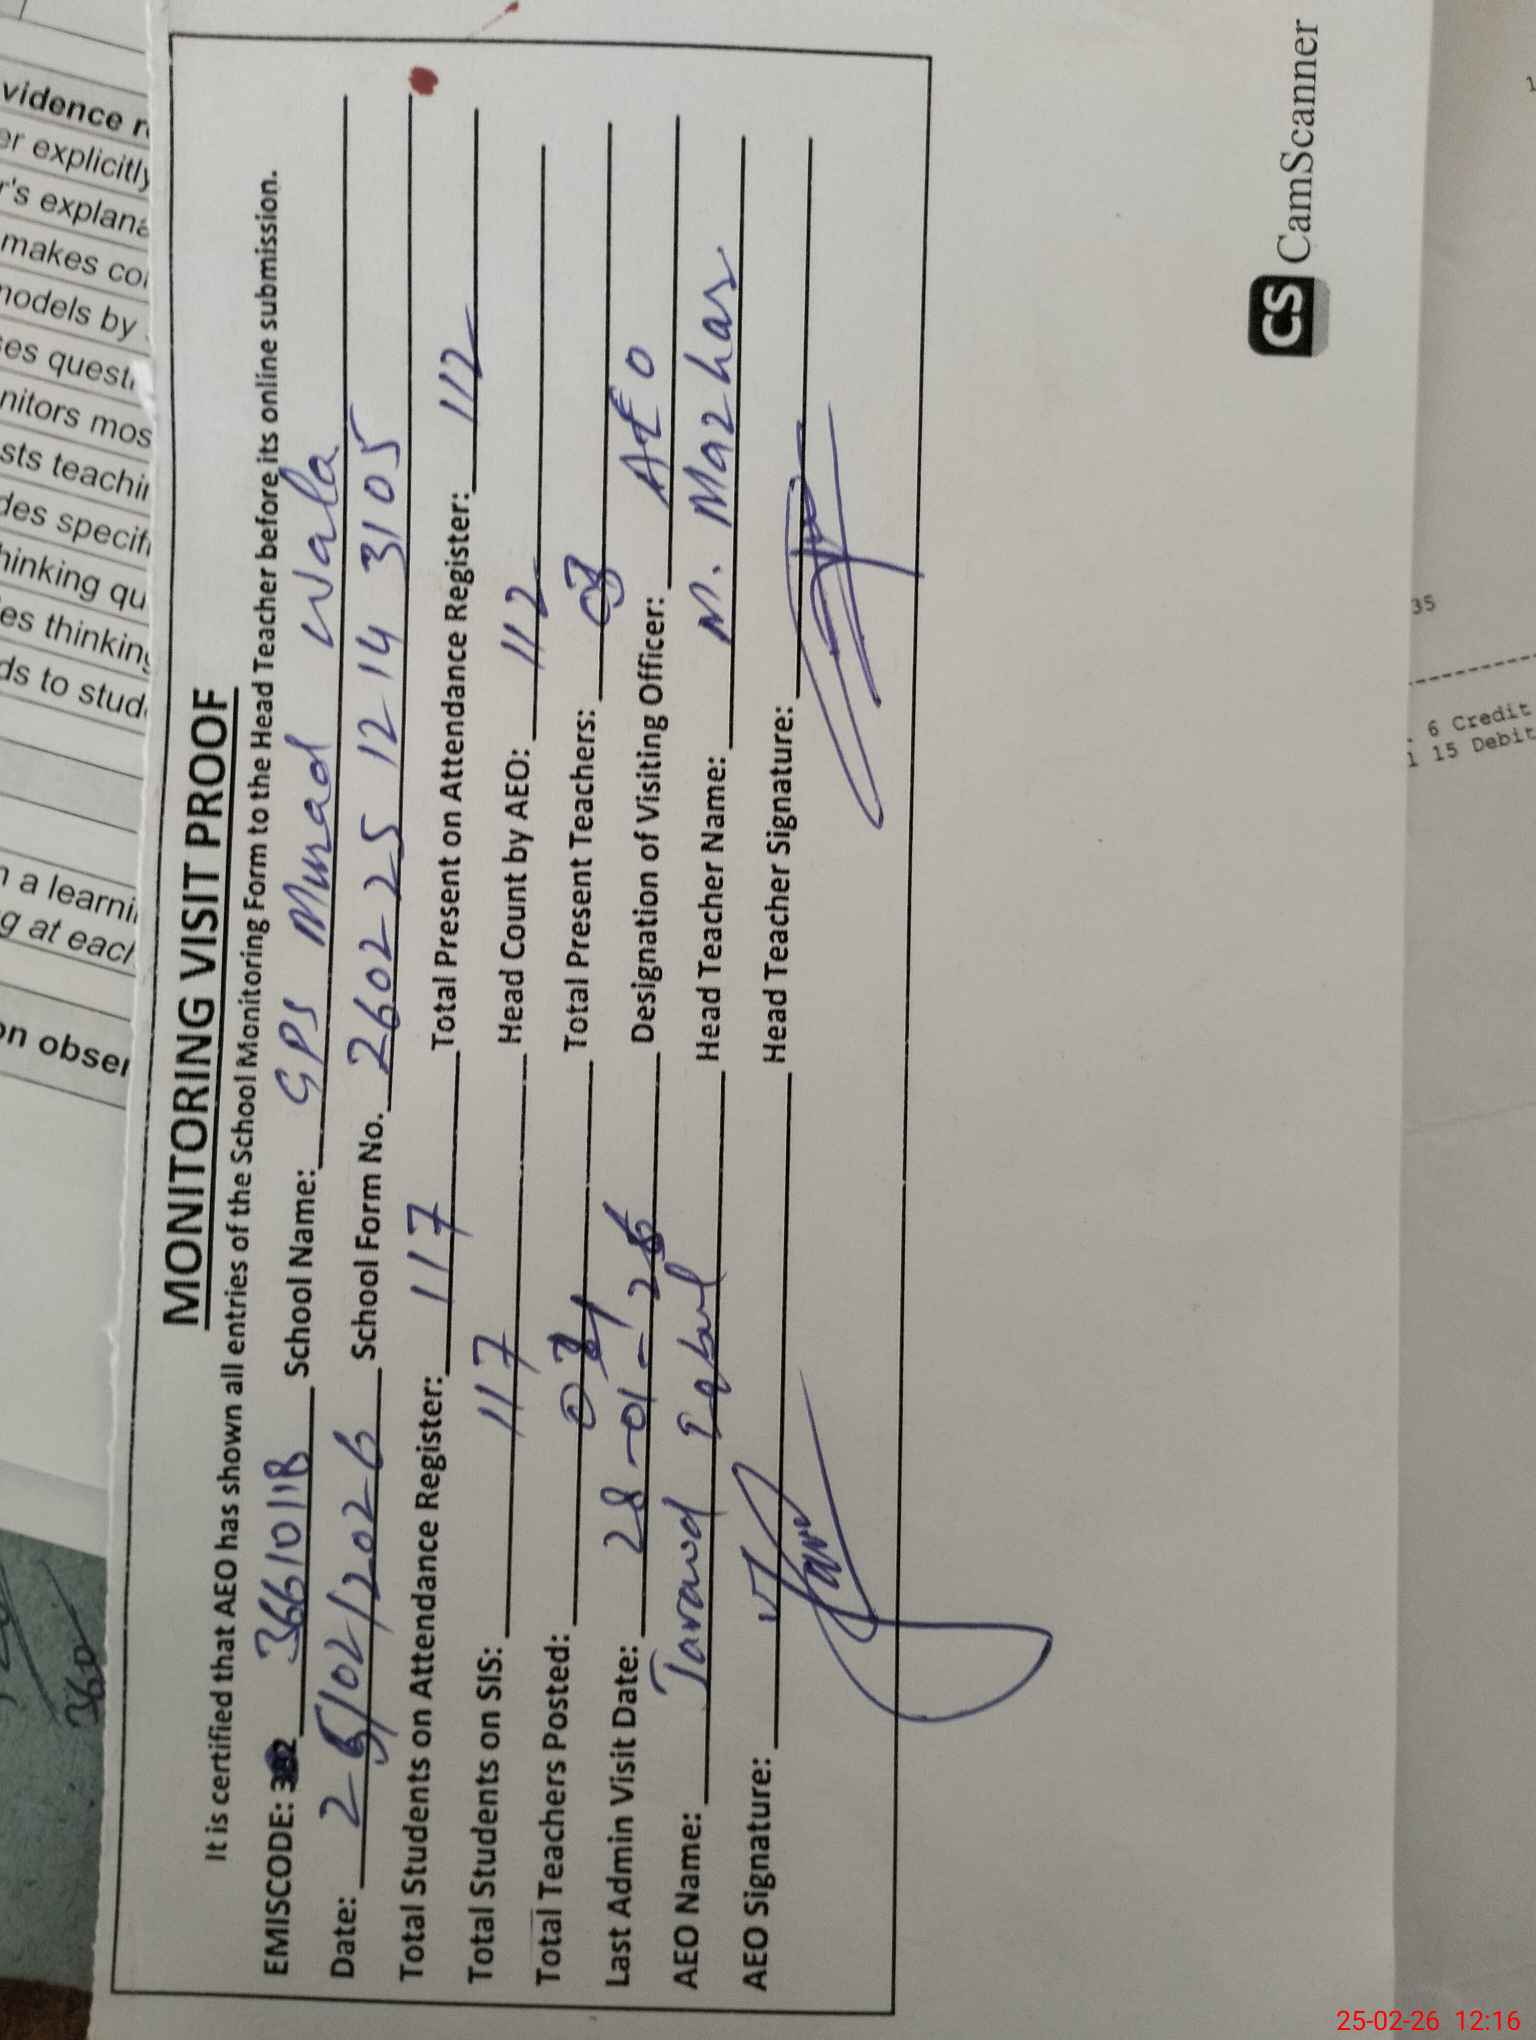 MONITORING VISIT PROOF
It is certified that AEO has shown all entries of the School Monitoring Form to the Head Teacher before its online submission.
EMISCODE: 36610118 School Name: GPS Murad Wala
Date: 25/02/2026 School Form No. 2602 25 12 14 3105
Total Students on Attendance Register: 117 Total Present on Attendance Register: 112
Total Students on SIS: 117 Head Count by AEO: 112
Total Teachers Posted: Total Present Teachers: 03
Last Admin Visit Date: 28-01-26 Designation of Visiting Officer: AEO
AEO Name: Head Teacher Name: M. Mazhar
AEO Signature: Head Teacher Signature:
CS CamScanner
vidence
er explicitly
r's explana
makes
models by
es quest
nitors mos
sts teachin
des specifi
hinking qu
es thinking
ds to stud
n a learni
g at each
on obser
360
35
6 Credit
15 Debit
25-02-26 12:16